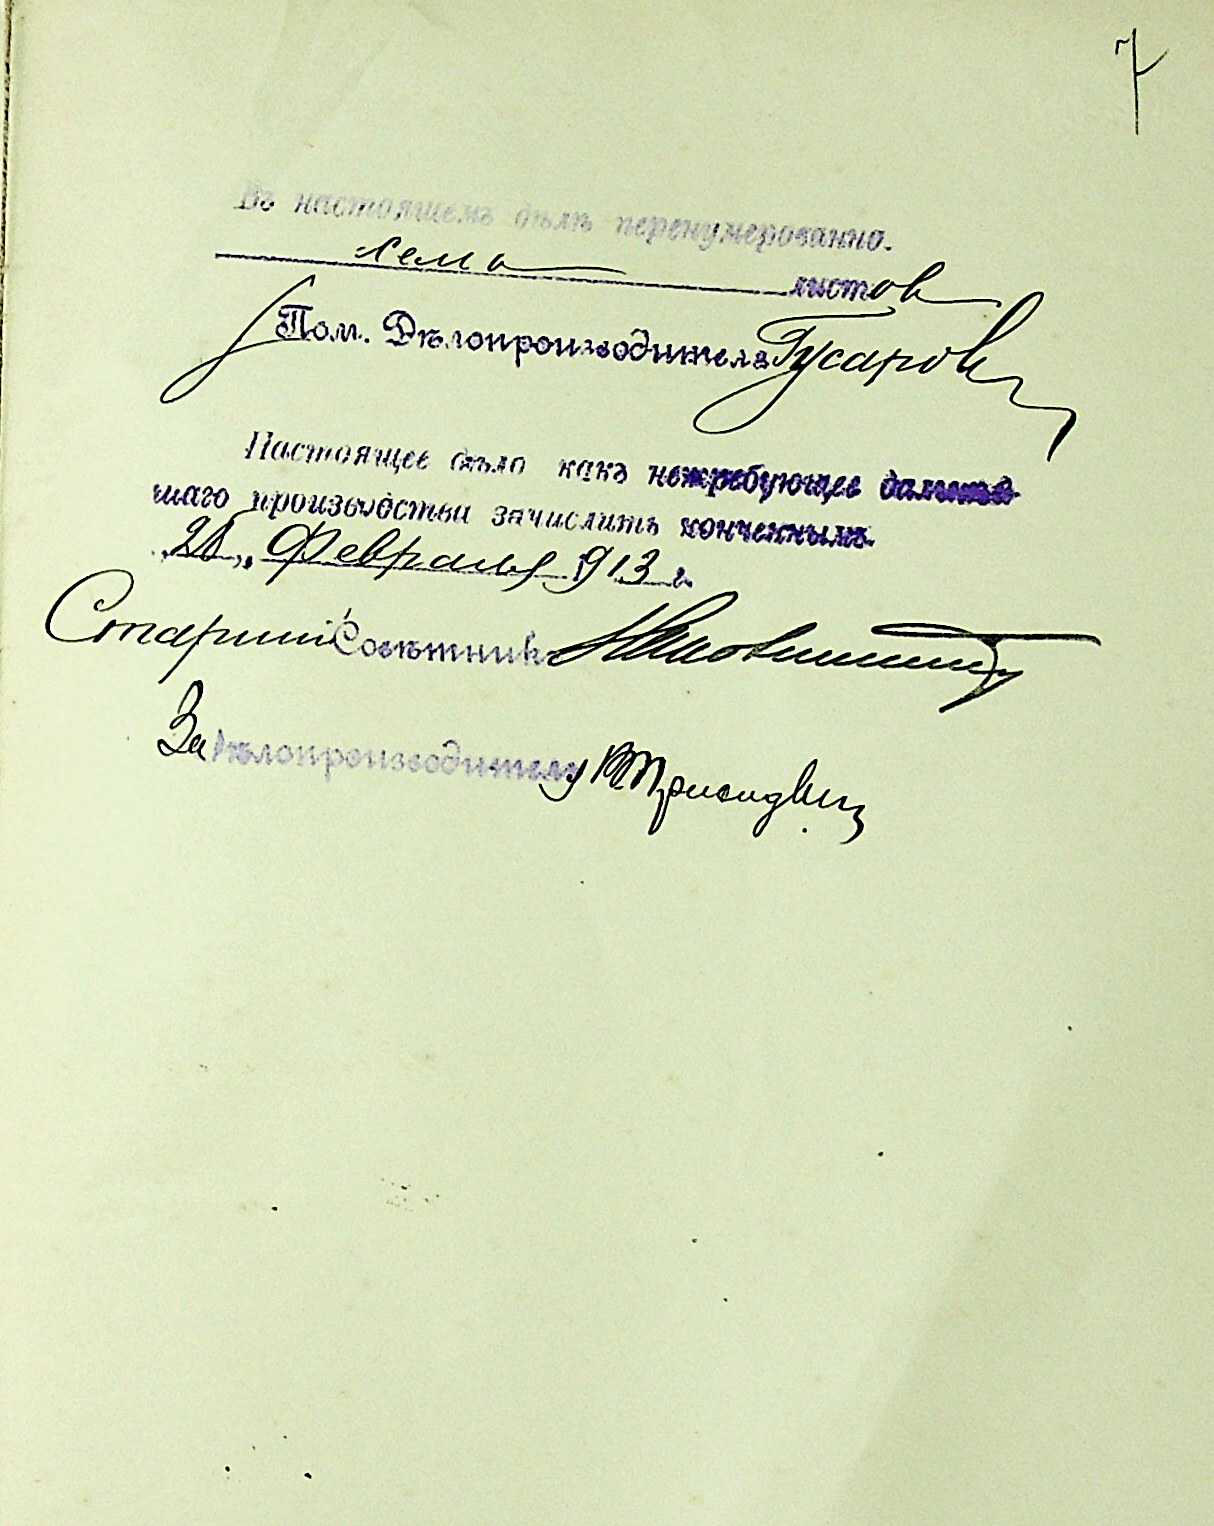 7
Въ настоящемъ дѣлѣ перенумерованно.
семь листов
Пом. Дѣлопроизводителя Гусаров
Настоящее дѣло какъ нетребующее дальнѣй-
шаго производства зачислить конченнымъ.
„ Февраля 1913 г.
Старшій Совѣтникъ
За Дѣлопроизводителя